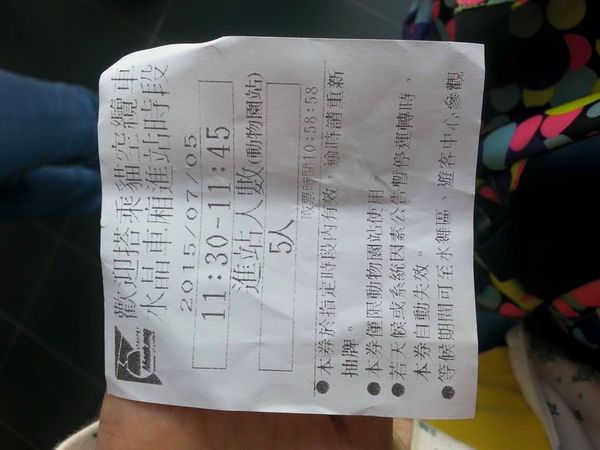 歡迎搭乘貓空纜車
水晶車廂進站時段
2015/07/05
11:30-11:45
進站人數(動物園站)
5人
取票時間10:58:58
●本券於指定時段內有效，逾時請重新
抽牌。
●本券僅限動物園站使用
●若天候或系統因素公告暫停運轉時，
本券自動失效。
●等候期間可至水舞區、遊客中心參觀